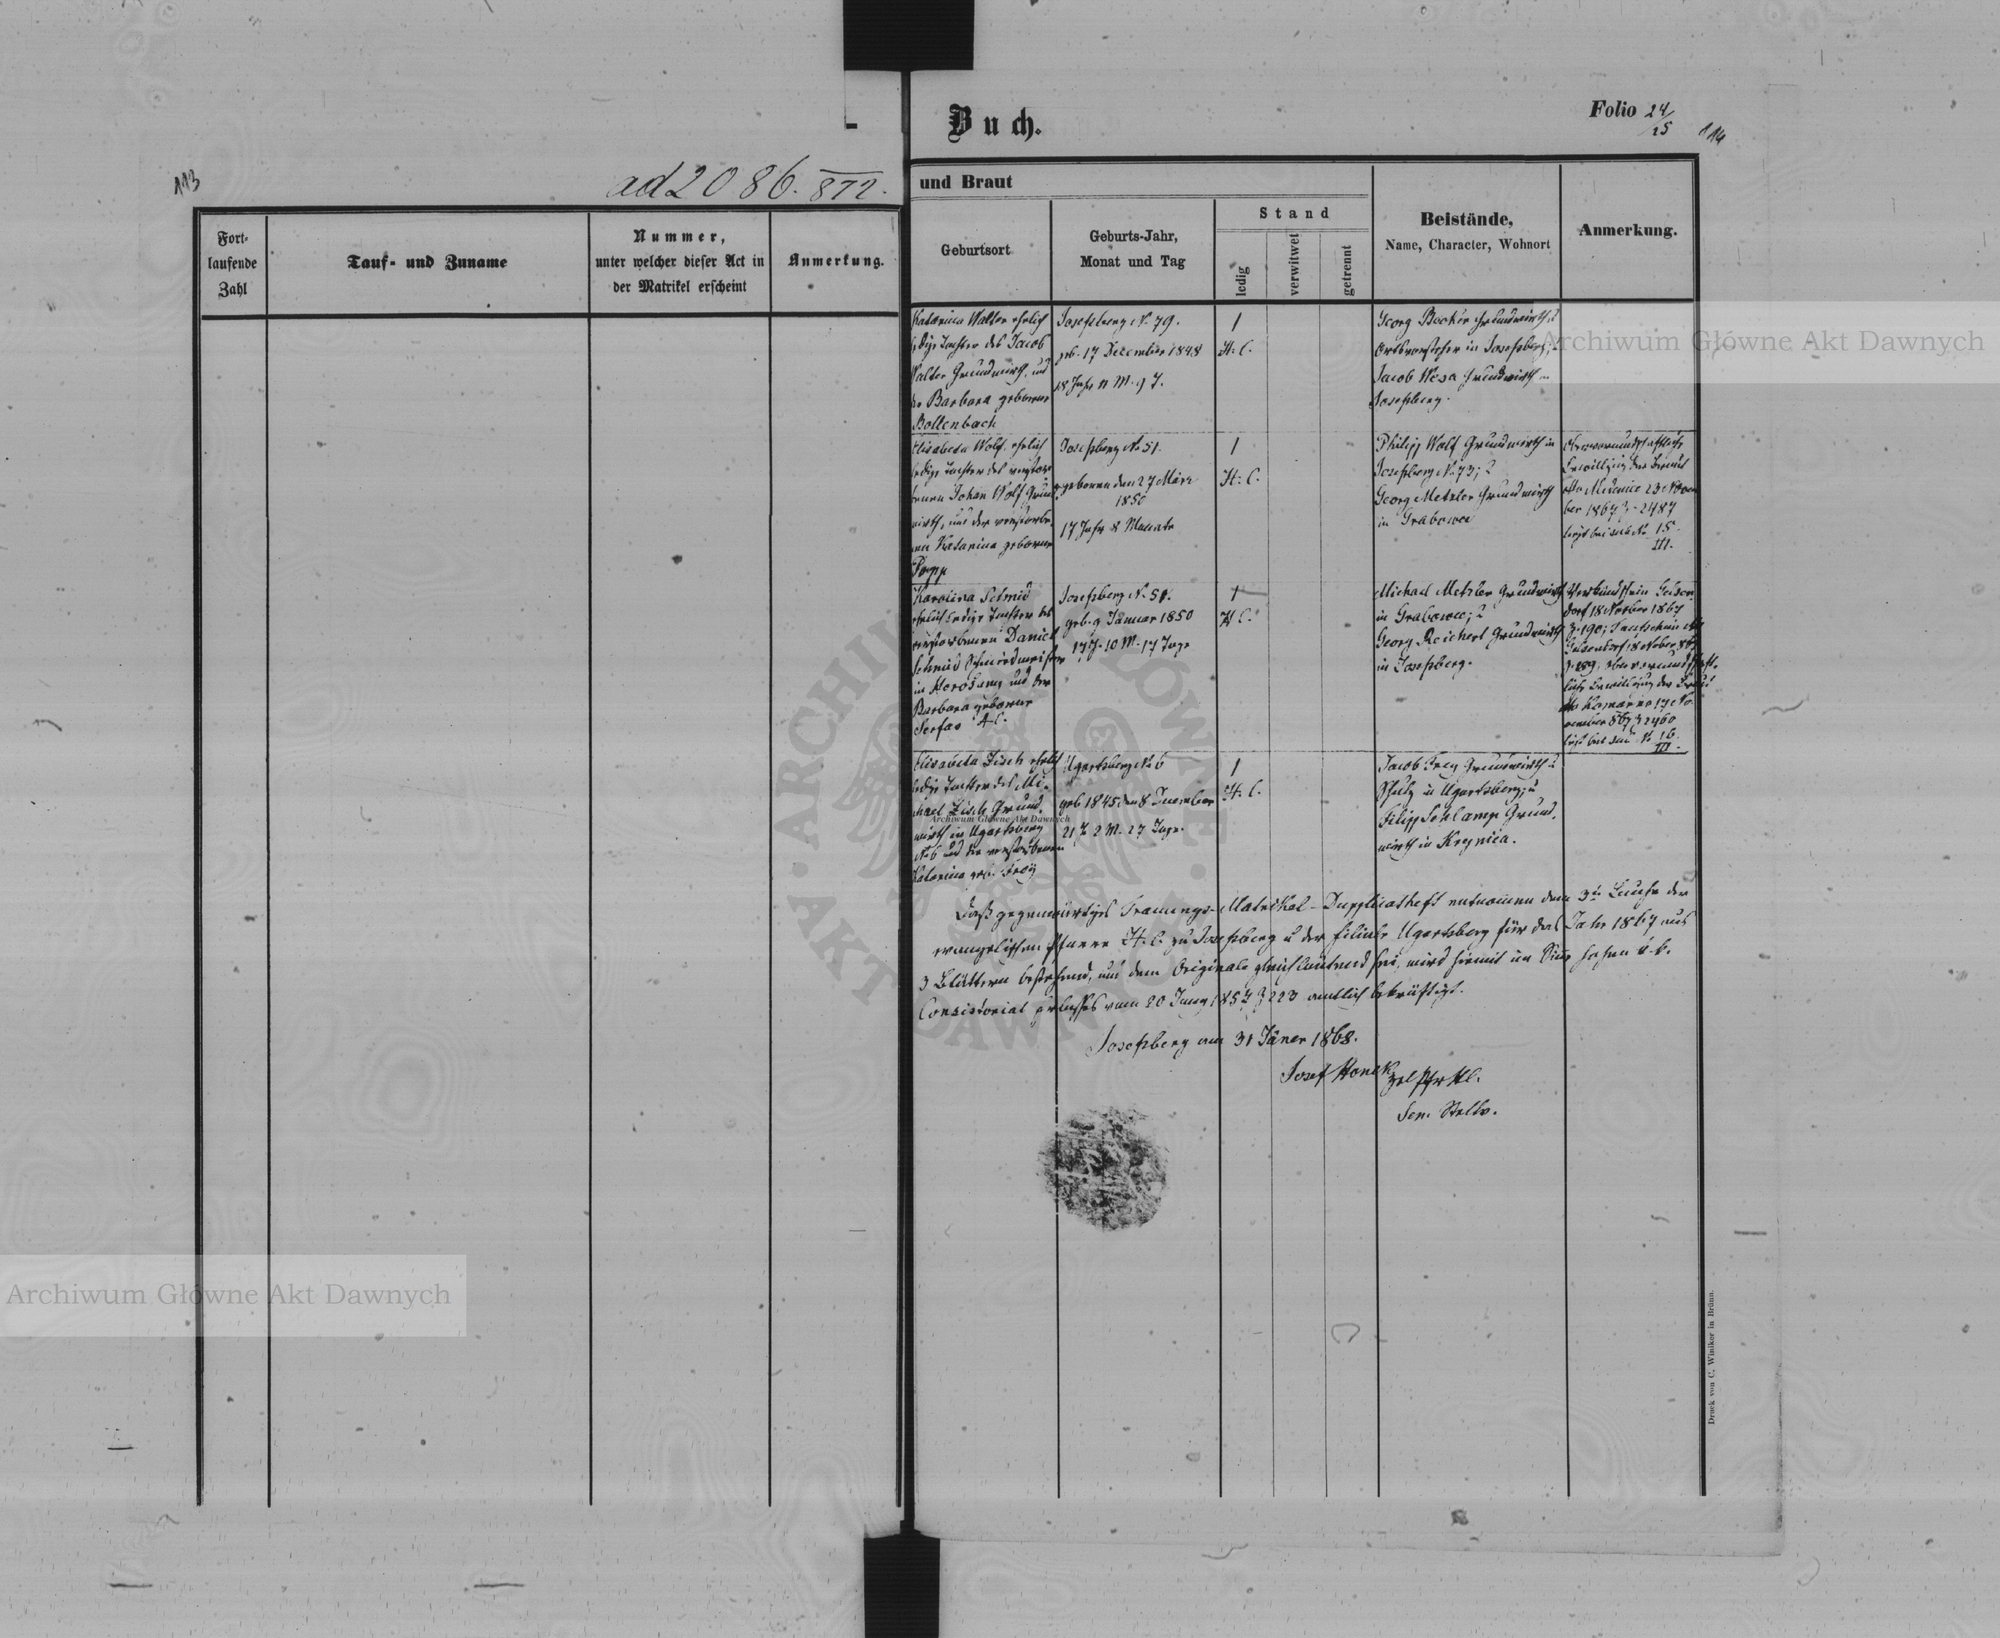 113
ad 2086. 872.
Fort-
laufende
Zahl
Tauf- und Zuname
Nummer,
unter welcher dieser Act in
der Matrikel erscheint
Anmerkung.
Buch.
Folio 24/25
114
und Braut
Geburtsort
Geburts-Jahr,
Monat und Tag
Stand
ledig
verwitwet
getrennt
Beistände,
Name, Character, Wohnort
Anmerkung.
Katarina Walter ehelich
ledige Tochter des Jacob
Walter Grundwirth, und
der Barbara geborene
Bollenbach
Josefsberg N. 79.
geb. 17 December 1848
18 Jahr 11 M. 9 T.
1
H. C.
Georg Becker Grundwirth u
Ortsvorsteher in Josefsberg; u
Jacob Wesa Grundwirth in
Josefsberg.
Elisabeta Wolf, ehelich
ledige Tochter des verstor-
benen Johan Wolf Grund-
wirth, und der verstorbe-
nen Katarina geborene
Popp
Josefsberg N. 51.
geboren den 27 März
1850
17 Jahr 8 Monate
1
H. C.
Philipp Wolf Grundwirth in
Josefsberg N. 73; u
Georg Metzler Grundwirth
in Grabowce
Obervormundschaftliche
Bewilligung der Braut
dto Medenice 23 Novem
ber 1867 Z. 2487
liegt bei sub N. 15.
III.
Karolina Schmid
ehelich ledige Tochter des
verstorbenen Daniel
Schmid Schmiedmeister
in und der
Barbara geborene
Serfas A. C.
Josefsberg N. 51.
geb. 9 Jänuar 1850
17 J. 10 M. 17 Tage
1
H. C.
Michael Metzler Grundwirth
in Grabowce; u
Georg Reichert Grundwirth
in Josefsberg.
Verkündschein Gelsen
dorf 18 Novber 1867
Z. 190; Taufschein dto
Gelsendorf 18 Novber 867
Z. 189; obervormundschaft-
liche Bewilligung der Braut
dto Komarno 17 No
vember 867 Z 2460
liegt bei sub N. 16.
III.
Elisabeta Zisch ehelich
ledige Tochter des Mi-
chael Zisch Grund-
wirth in Ugartsberg
N. 6 und der verstorbenen
Katarina geb. Frey
Ugartsberg N. 6
geb 1845 den 8
21 J. 2 M. 27 Tage.
1
H. C.
Jacob Frey Grundwirth u
Schulz in Ugartsberg; u
Filipp Schlamp Grund-
wirth in Krynica.
Daß gegenwärtiges Trauungs-Matrikel-Duplicatheft entnomen dem 3ten Buche der
evangelischen Pfarre H. C. zu Josefsberg u der Filiale Ugartsberg für das Jahr 1867 aus
3 Blättern bestehend, und dem Originale gleichlautend sei, wird hiemit im Sinne hohen k. k.
Consistorial Erlasses vom 20 Juny 1857 Z 223 amtlich bekräftigt.
Josefsberg am 31 Jäner 1868.
Josef
Sen. Stellv.
Druck von C. Winiker in Brünn.
Archiwum Główne Akt Dawnych
Archiwum Główne Akt Dawnych
Archiwum Główne Akt Dawnych
ARCHIWUM GŁÓWNE AKT DAWNYCH